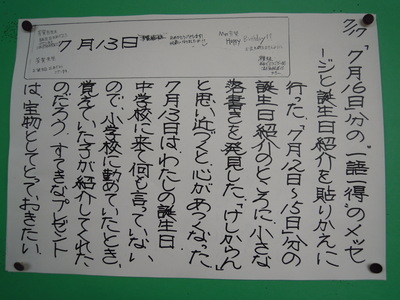 7/17
「7月16日」分の“一語一得”のメッセ
ージと誕生日紹介を貼りかえに
行った。「7月12日〜15日」分の
誕生日紹介のところに、小さな
落書きを発見した。「けしからん」
と思い近づくと、心があつくなった。
7月13日はわたしの誕生日。
中学校に来て何も言っていない
ので、小学校に勤めていたとき、
覚えていた子が紹介してくれた
のだろう。すてきなプレゼント
は、宝物としてとっておきたい。
7月13日
Happy Birthday!!